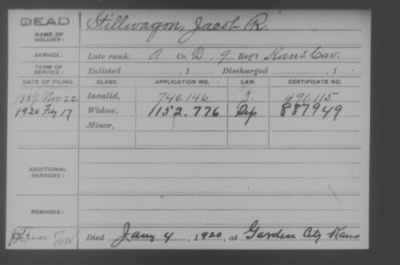 DEAD
NAME OF SOLDIER: Stillwagon, Jacob R.
SERVICE: Late rank, Co. D, 9 Reg't Kans Cav.
TERM OF SERVICE: Enlisted , 1 Discharged , 1
DATE OF FILING. CLASS. APPLICATION NO. LAW. CERTIFICATE NO.
Nov 22 Invalid, 746146 491.115
1920 Feby 17 Widow, 1152.776 887949
Minor,
ADDITIONAL SERVICES:
REMARKS:
Died Jany 4, 1920, at Garden City Kans